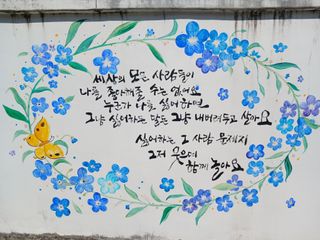 세상의 모든 사람들이
나를 좋아해줄 수는 없어요
누군가 나를 싫어하면
그냥 싫어하는 달은 그냥 내버려두고 살아요
싫어하는 그 사람 문제지
그저 웃으며
함께 놀아요